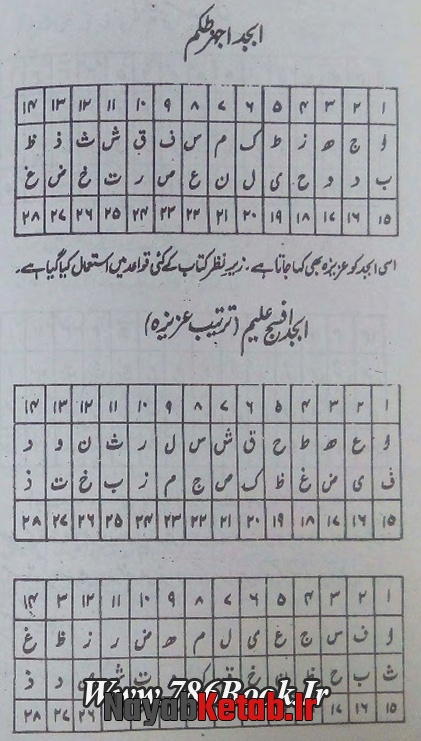 ابجد اجھزطکم
۱ ۲ ۳ ۴ ۵ ۶ ۷ ۸ ۹ ۱۰ ۱۱ ۱۲ ۱۳ ۱۴
ا ج ھ ز ط ک م س ف ق ش ث ذ ظ
ب د و ح ی ل ن ع ص ر ت خ ض غ
۱۵ ۱۶ ۱۷ ۱۸ ۱۹ ۲۰ ۲۱ ۲۲ ۲۳ ۲۴ ۲۵ ۲۶ ۲۷ ۲۸
اسی ابجد کو عزیزہ بھی کہا جاتا ہے۔ زیرِ نظر کتاب کے کئی قواعد میں استعمال کیا گیا ہے۔
ابجد افسج علیم (ترتیب عزیزہ)
۱ ۲ ۳ ۴ ۵ ۶ ۷ ۸ ۹ ۱۰ ۱۱ ۱۲ ۱۳ ۱۴
ا ع ھ ط ح ق ش س ل ر ث ن و د
ف ی ض غ ظ ک ص ج م ز ب خ ت ذ
۱۵ ۱۶ ۱۷ ۱۸ ۱۹ ۲۰ ۲۱ ۲۲ ۲۳ ۲۴ ۲۵ ۲۶ ۲۷ ۲۸
۱ ۲ ۳ ۴ ۵ ۶ ۷ ۸ ۹ ۱۰ ۱۱ ۱۲ ۳ ۱۴
ا ف س ج ع ی ل م ھ ض ر ز ظ غ
ث ب ح د ذ
Www.786Book.Ir
NayabKetab.ir
۱۵ ۱۶ ۱۷ ۱۸ ۲۶ ۲۷ ۲۸